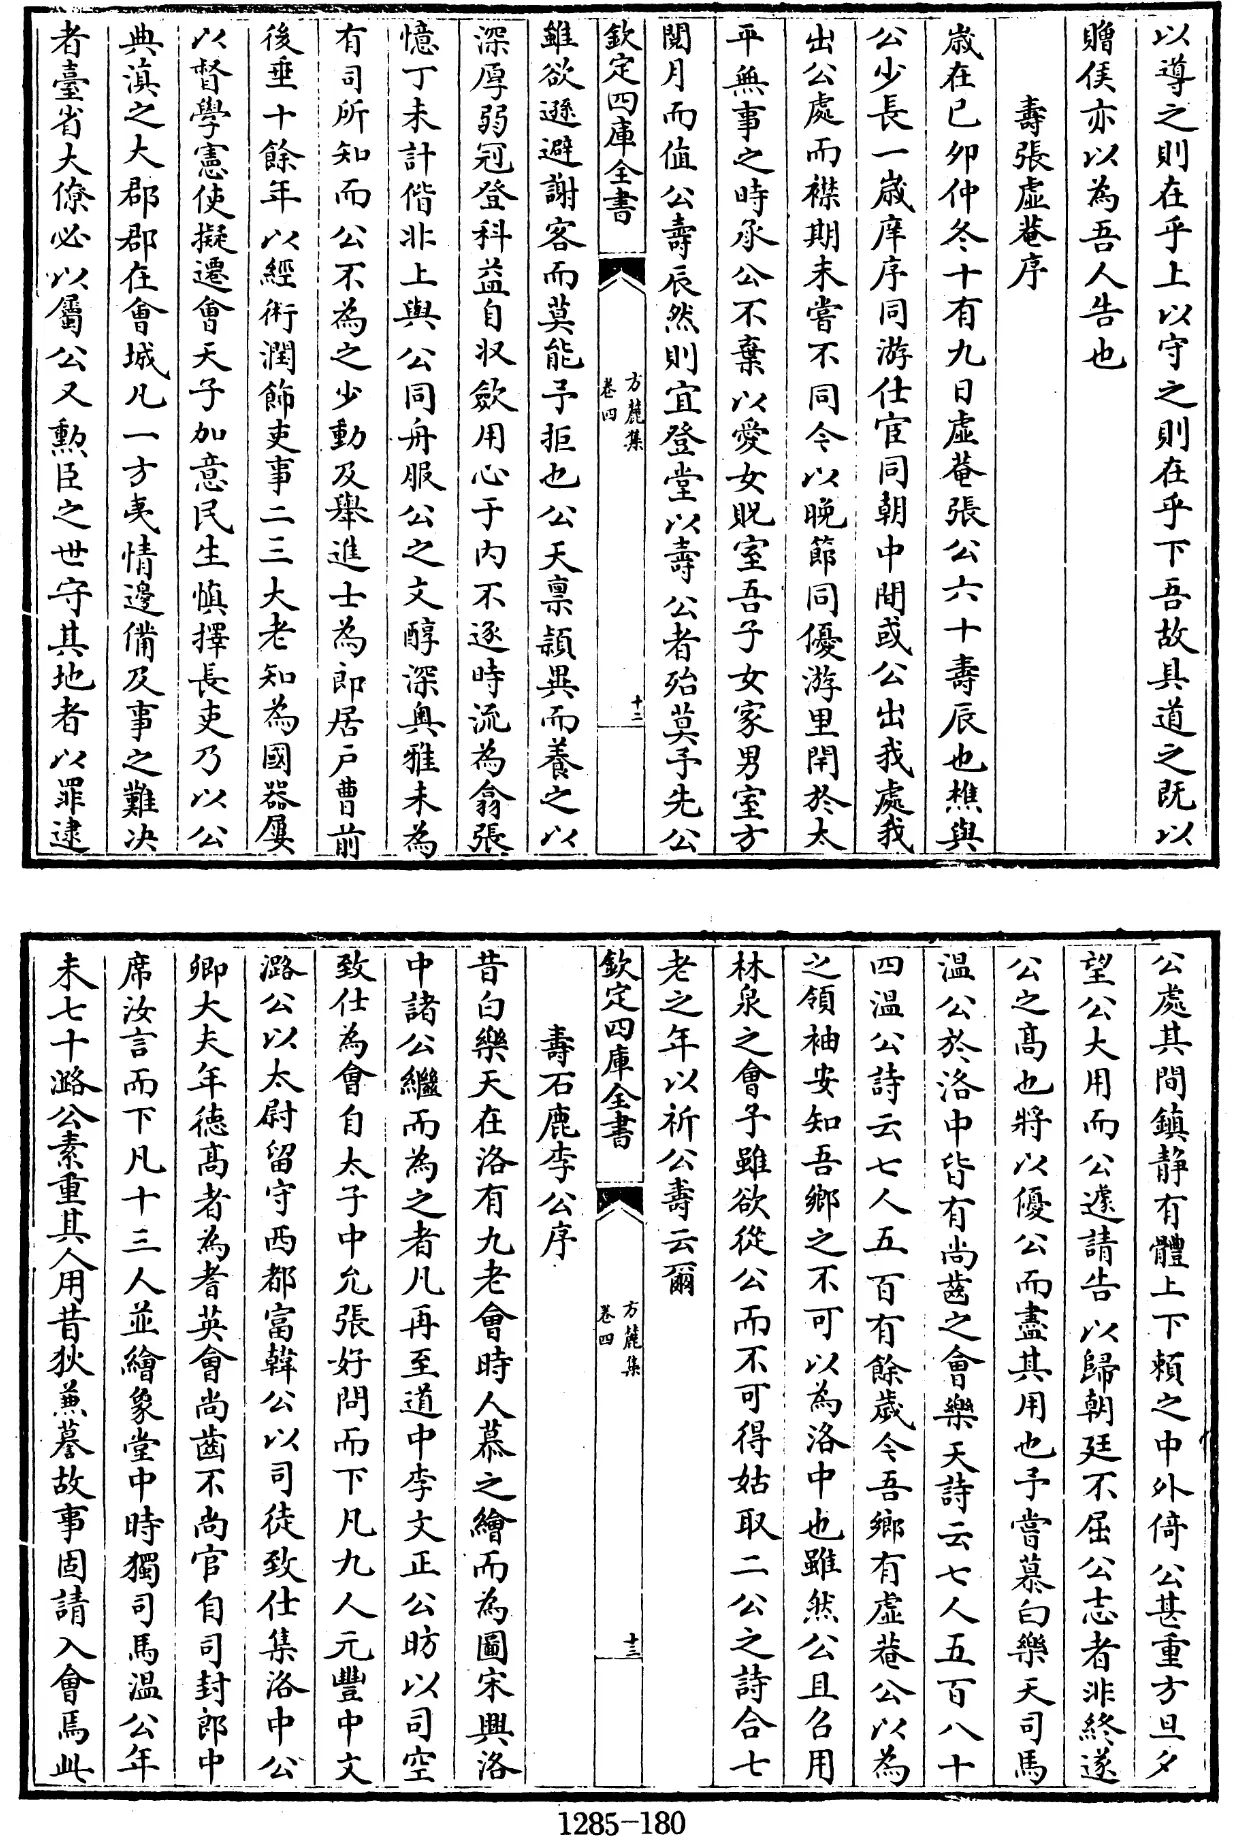 以導之則在乎上以守之則在乎下吾故具道之既以
贈侯亦以為吾人告也
壽張虛菴序
歲在已卯仲冬十有九日虛菴張公六十壽辰也樵與
公少長一歲庠序同游仕宦同朝中間或公出我處我
出公處而襟期未嘗不同今以晚節同優游里閈於太
平無事之時承公不棄以愛女貺室吾子女家男室方
閱月而值公壽辰然則宜登堂以壽公者殆莫予先公
欽定四庫全書
方麓集
卷四
十二
雖欲遜避謝客而莫能予拒也公天禀頴異而養之以
深厚弱冠登科益自收斂用心于内不逐時流為翕張
憶丁未計偕北上與公同舟服公之文醇深奥雅未為
有司所知而公不為之少動及舉進士為郎居戸曹前
後垂十餘年以經術潤飾吏事二三大老知為國器屢
以督學憲使擬遷會天子加意民生慎擇長吏乃以公
典滇之大郡郡在會城凡一方夷情邊備及事之難决
者臺省大僚必以屬公又勲臣之世守其地者以罪逮
公處其間鎮静有體上下頼之中外倚公甚重方旦夕
望公大用而公遽請告以歸朝廷不屈公志者非終遂
公之髙也將以優公而盡其用也予嘗慕白樂天司馬
温公於洛中皆有尚齒之會樂天詩云七人五百八十
四温公詩云七人五百有餘歲今吾鄉有虛菴公以為
之領袖安知吾鄉之不可以為洛中也雖然公且召用
林泉之會予雖欲從公而不可得姑取二公之詩合七
老之年以祈公壽云爾
欽定四庫全書
方麓集
卷四
十三
壽石鹿李公序
昔白樂天在洛有九老會時人慕之繪而為圖宋興洛
中諸公繼而為之者凡再至道中李文正公昉以司空
致仕為會自太子中允張好問而下凡九人元豐中文
潞公以太尉留守西都富韓公以司徒致仕集洛中公
卿大夫年德髙者為耆英會尚齒不尚官自司封郎中
席汝言而下凡十三人並繪象堂中時獨司馬温公年
未七十潞公素重其人用昔狄兼謩故事固請入會焉此
1285-180